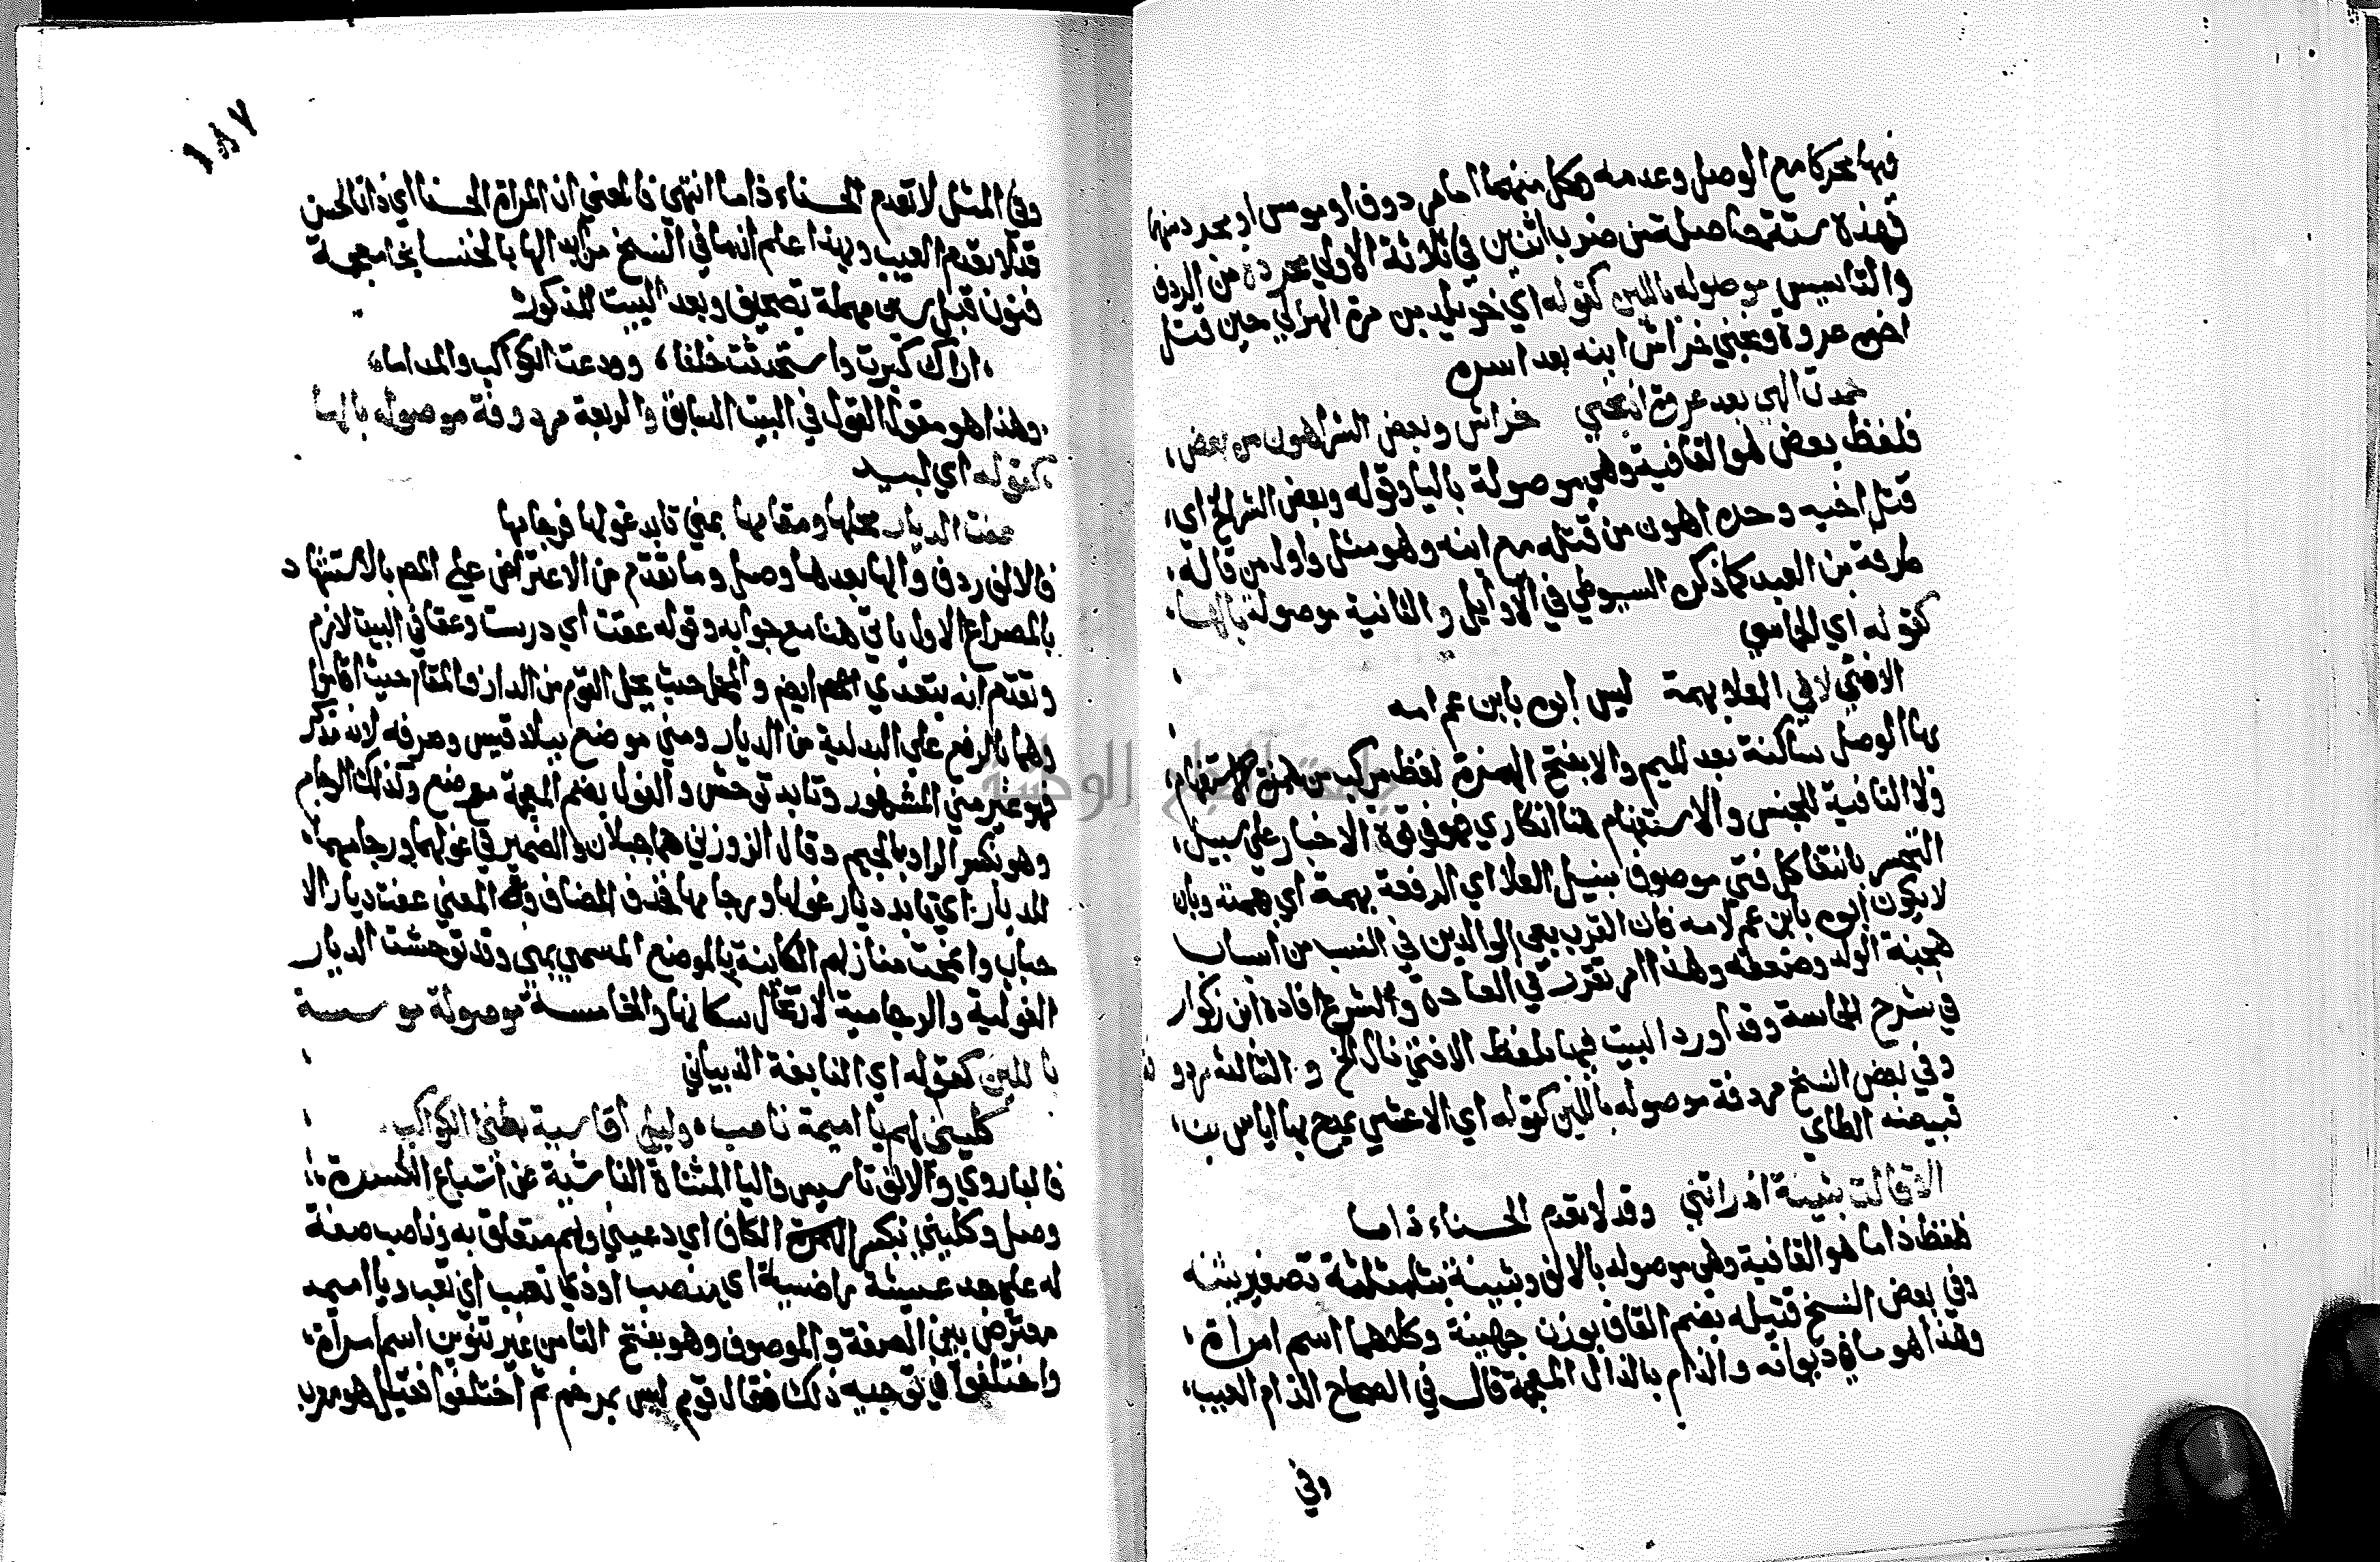 فيها محركا مع الوصل وعدمه وكل منهما اما مردوف او موسس او مجرد منهما
فهذه ستة حاصلة من ضرب اثنين في ثلاثة الاولي مجردة من الردف
والتأسيس موصوله باللين كقوله اي خويلد بن مرة الهزلي حين قتل
اخوه عروة ونجي خراش ابنه بعد اسره
حمدت الهي بعد عروة اذ نجي خراش وبعض الشر اهون من بعض
فلفظ بعض هو القافية وهي موصولة باليا وقوله وبعض الشر الخ اي
قتل اخيه وحده اهون من قتله مع ابنه وهو مثل واول من قاله
طرفة بن العبد كما ذكره السيوطي في الاوايل والثانية موصولة بالهاء
كقوله اي الحماسي
الا فتي لاقي العلا بهمة ليس ابوه بابن عم امه
بها الوصل ساكنة بعد الميم والا بفتح الهمزة لفظ مركب من همزة الاستفهام
ولا النافية للجنس والاستفهام هنا انكاري فهو في قوة الاخبار علي سبيل
التحسر بانتفا كل فتي موصوف بنيل العلا اي الرفعة بهمة اي بهمته وبان
لا يكون ابوه بابن عم لامه فان القرب بين الوالدين في النسب من اسباب
هجنة الولد وضعفه وهذا امر تقرر في العادة والشرع افاده ابن زكوار
في شرح الحماسة وقد اورد البيت فيها بلفظ الا فتي نال الخ والثالثة مردو فه
وفي بعض النسخ مردفة موصوله باللين كقوله اي الاعشي يمدح بها اياس بن
قبيصه الطاي
الا قالت بثينة اذ راتني وقد لا تقدم الحسناء ذاما
فلفظ ذاما هو القافية وهي موصوله بالالف وبثينة بثا مثلثة تصغير بثنه
وفي بعض النسخ قتيله بضم القاف بوزن جهينة وكلاهما اسم امراة
وهذا هو ما في ديوانه والذام بالذال المعجمة قال في الصحاح الذام العيب
وفي
١٨٧
وفي المثل لا تقدم الحسناء ذاما انتهي فالمعني ان المراة الحسنا اي ذات الحسن
قد لا تقدم العيب وبهذا علم انها في النسخ من ابدالها بالخنسا بخا معجمة
فنون قبل سين مهملة تصحيف وبعد البيت المذكور
اراك كبرت واستحدثت خلقا وودعت الكواكب والمداما
وهذا هو مقول القول في البيت السابق والرابعة مردوفة موصوله بالها
كقوله اي لبيد
عفت الديار محلها ومقامها بمني تابد غولها فرجامها
فالالف ردف والها بعدها وصل وما تقدم من الاعتراض علي المص بالاستشهاد
بالمصراع الاول ياتي هنا مع جوابه وقوله عفت اي درست وعفا في البيت لازم
وتقدم انه يتعدي ايض والمحل حيث يحل القوم من الدار والمقام حيث اقاموا
وهما بالرفع علي البدلية من الديار ومني موضع ببلاد قيس وصرفه لانه مذكر
وهو غير مني المشهور وتابد توحش والغول بضم المعجمة موضع وكذلك الرجام
وهو بكسر الرا وبالجيم وقال الزوزني هما جبلان والضمير في غولها ورجامها
للديار اي تابد ديار غولها ورجامها فحذف المضاف والمعني عفت ديار الا
حباب وانمحت منازلهم الكاينة بالموضع المسمي بمني وقد توحشت الديار
الغولية والرجامية لارتحال سكانها والخامسة موصولة موسسة
باللين كقوله اي النابغة الذبياني
كليني لهم يا اميمة ناصب وليل اقاسيه بطئ الكواكب
فالبا روي والالف تاسيس واليا المثناة الناشية عن اشباع الكسرة
وصل وكليني بكسر الكاف اي دعيني ولهم متعلق به وناصب صفة
له علي حد عيشة راضية اي منصب او ذي نصب اي تعب ويا اميمه
معترض بين الصفة والموصوف وهو بفتح التا من غير تنوين اسم امراة
واختلفوا في توجيه ذلك فقال قوم ليس بمرخم ثم اختلفوا فقيل هو معرب